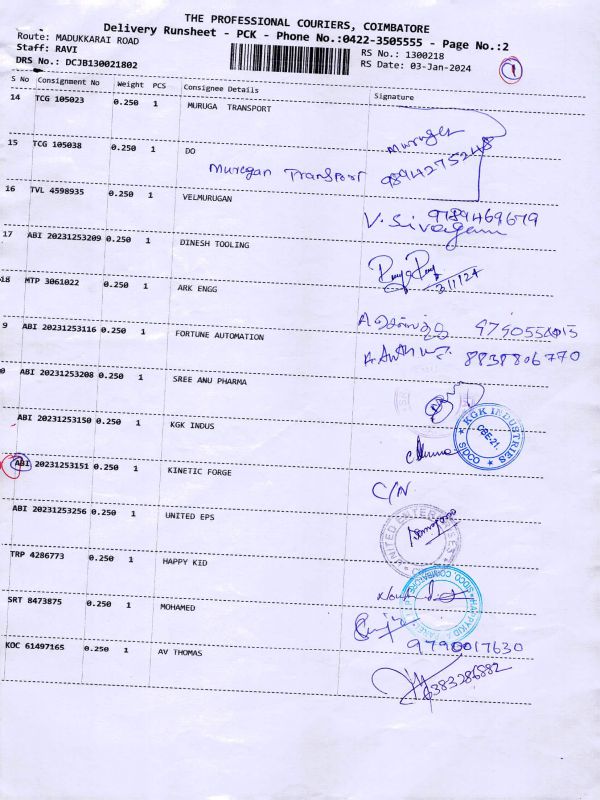 THE PROFESSIONAL COURIERS, COIMBATORE
Delivery Runsheet - PCK - Phone No.:0422-3505555 - Page No.:2
Route: MADUKKARAI ROAD
Staff: RAVI
RS No.: 1300218
DRS No.: DCJB130021802
RS Date: 03-Jan-2024
1
S No Consignment No Weight PCS Consignee Details Signature
14 TCG 105023 0.250 1 MURUGA TRANSPORT
Murugan
15 TCG 105038 0.250 1 DO
Muregan Transport 9894275248
16 TVL 4598935 0.250 1 VELMURUGAN
9789469679
V. Sivagami
17 ABI 20231253209 0.250 1 DINESH TOOLING
3/1/24
18 MTP 3061022 0.250 1 ARK ENGG
9 ABI 20231253116 0.250 1 FORTUNE AUTOMATION
8838806770
0 ABI 20231253208 0.250 1 SREE ANU PHARMA
ABI 20231253150 0.250 1 KGK INDUS
KGK INDUSTRIES
CBE-21.
SIDCO
ABI 20231253151 0.250 1 KINETIC FORGE
C/N
ABI 20231253256 0.250 1 UNITED EPS
UNITED ENTERPRISES
TRP 4286773 0.250 1 HAPPY KID
SRT 8473875 0.250 1 MOHAMED
9790017630
KOC 61497165 0.250 1 AV THOMAS
6383286882